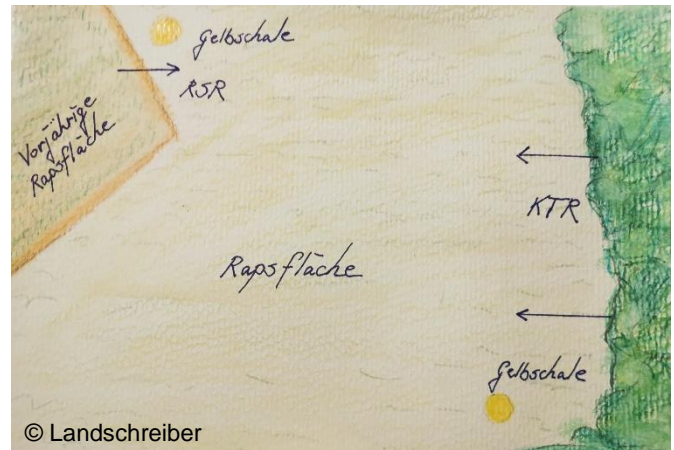 Gelbschale
RSR
Vorjährige
Rapsfläche
KTR
Rapsfläche
Gelbschale
© Landschreiber